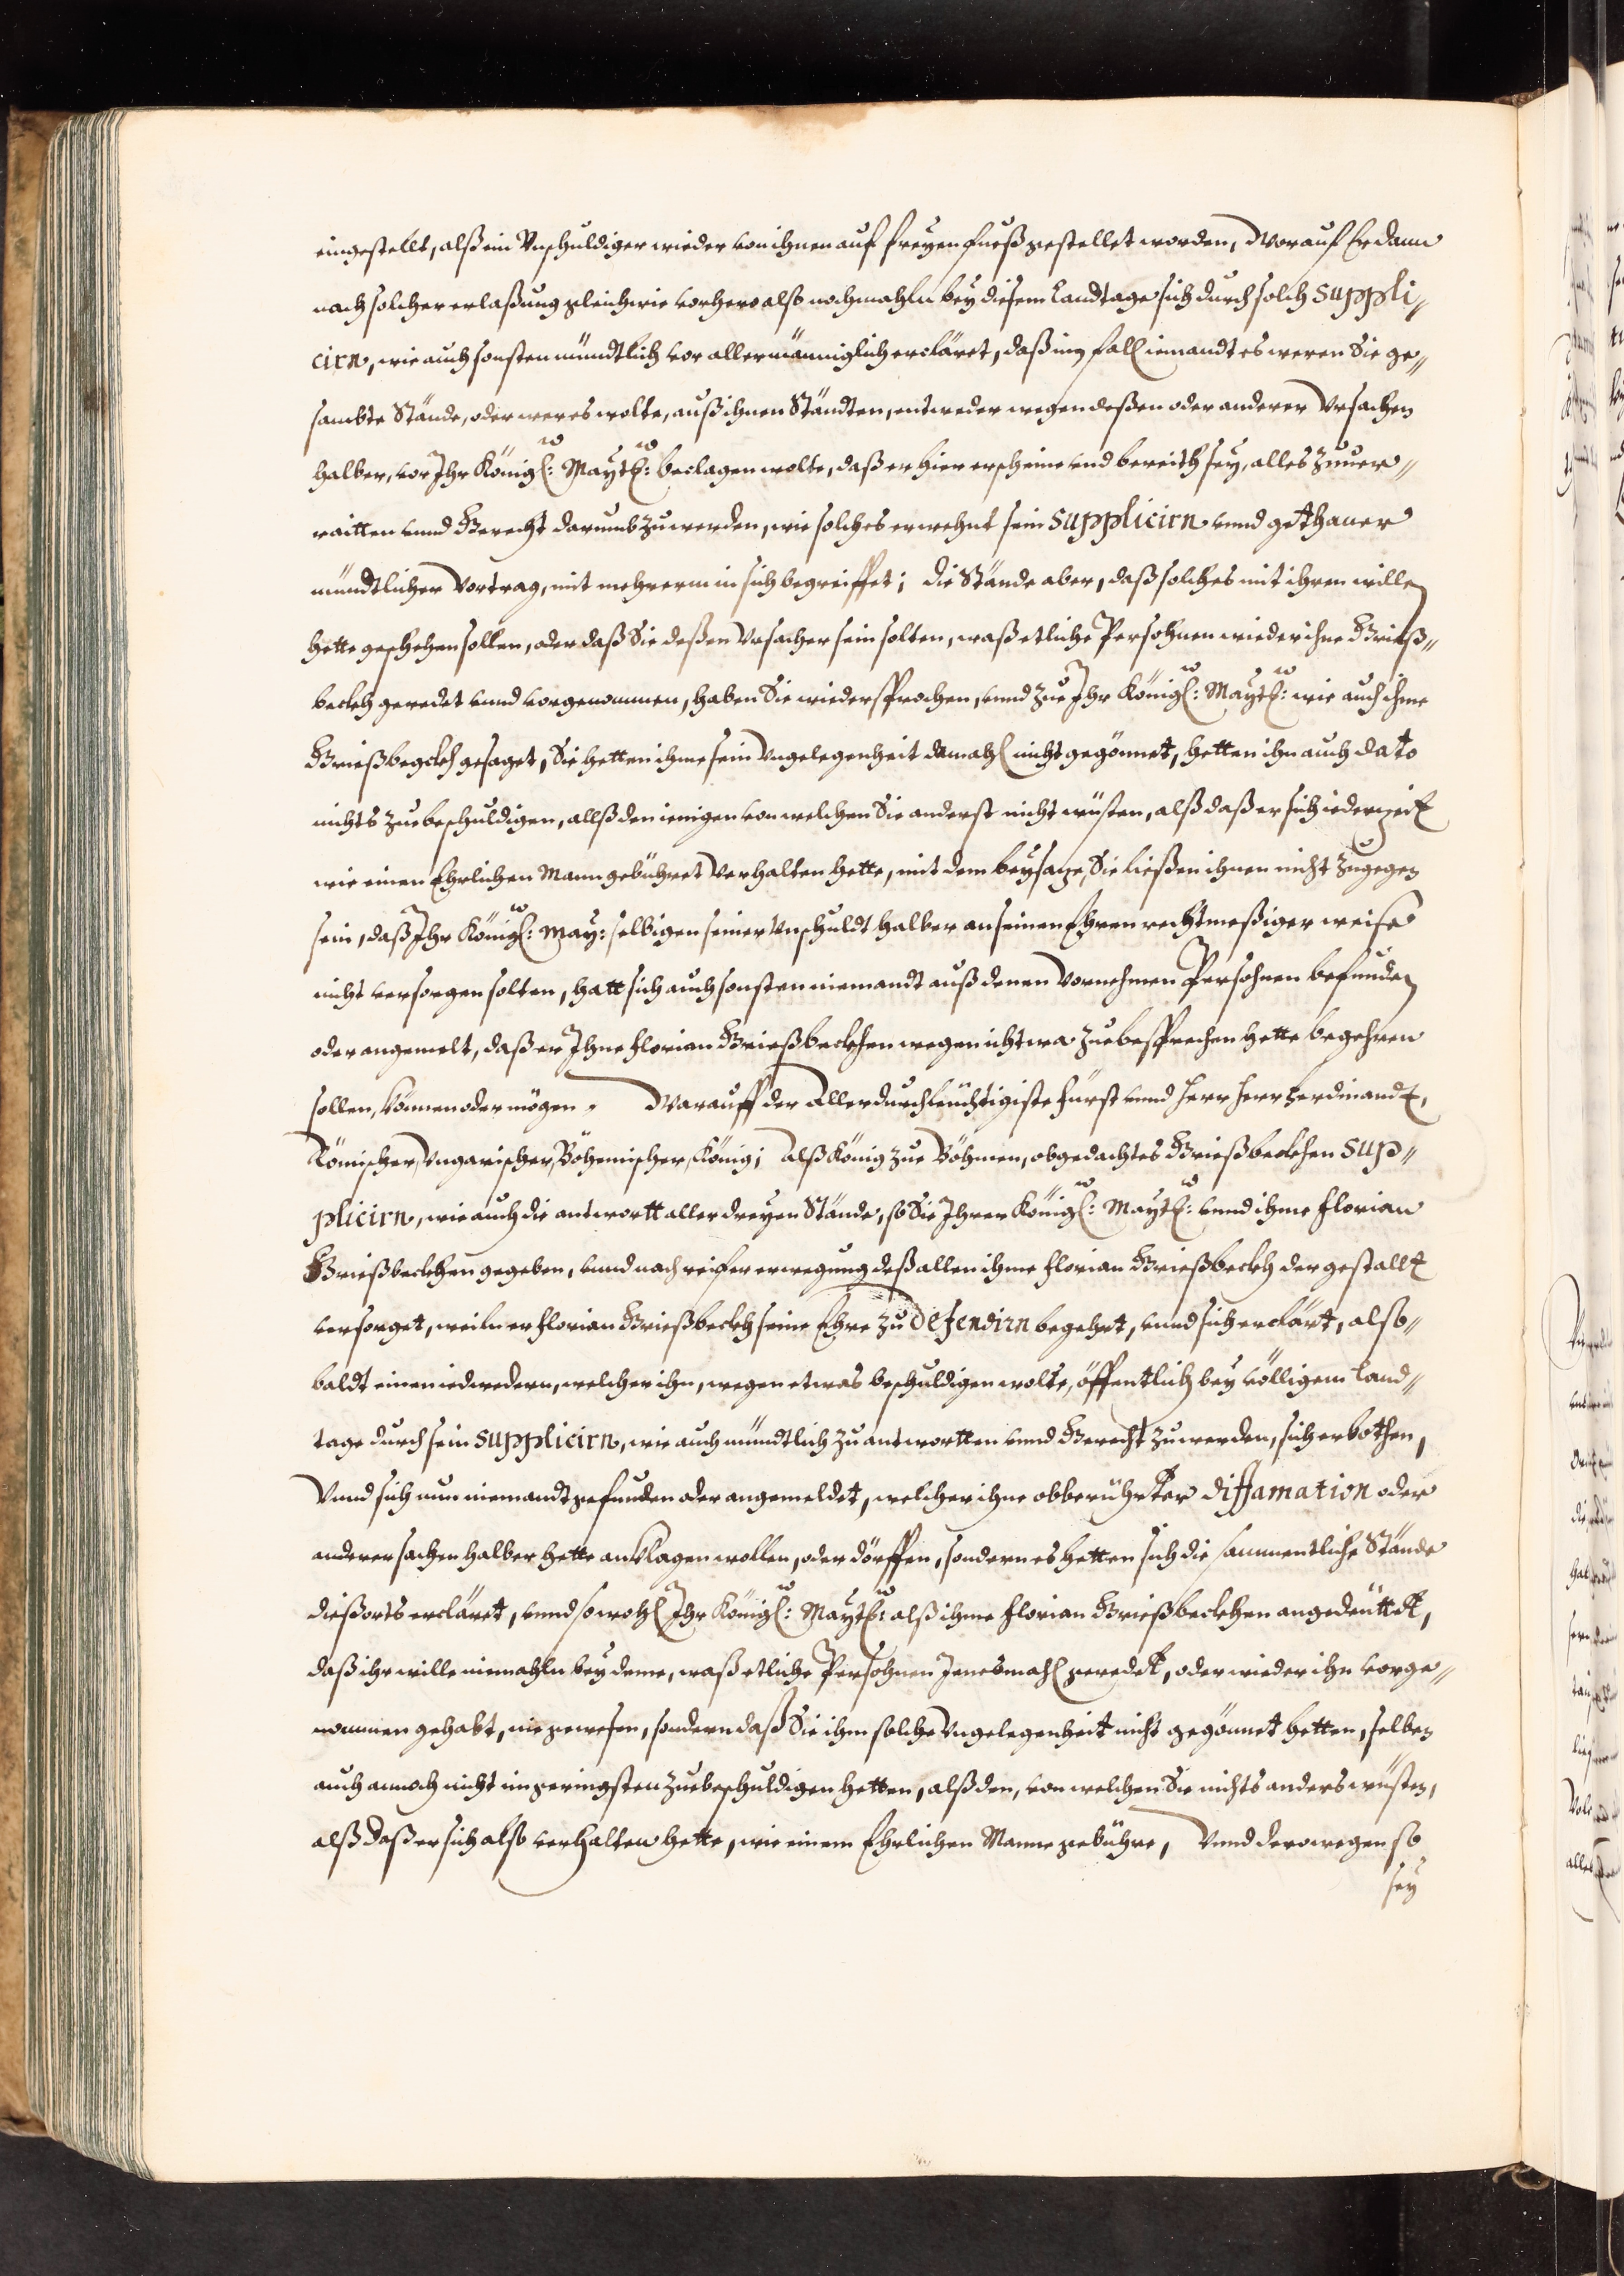 eingestellt, alß ein Vnschuldiger wieder von ihnen auf freyen fueß gestellet worden, Worauf Er dann
nach solcher erlaßung gleichwie vorhero alß nochmahln bey diesem Landtage sich durch solch Suppli„
cirn, wie auch sonsten mündtlich vor allermänniglich ercläret, daß im fall iemandt es weren Sie ge„
sambte Stände, oder wer es wolte, auß ihnen Ständten, entweder wegen deßen oder anderer Vrsachen
halber, vor Ihr Königl: Maytt: beclagen wolte, daß er hier erscheine vnd bereith sey, alles zuuer„
raitten vnnd Gerecht darumb zuwerden, wie solches erwehnt sein Supplicirn vnnd gethaner
mündtlicher Vortrag, mit mehrerm in sich begreiffet; die Stände aber, daß solches mit ihrem willen
hette geschehen sollen, oder daß Sie deßen Vrsacher sein solten, waß etliche Persohnen wieder ihne Grieß„
beckh geredet vnnd vorgenommen, haben Sie wiedersprochen, vnnd zue Ihr Königl: Maytt: wie auch ihme
Grießbegckh gesaget, Sie hetten ihme sein Vngelegenheit damahl nicht gegönnet, hetten ihn auch dato
nichts zue beschuldigen, allß den ienigen von welchen Sie anderst nicht wüsten, alß daß er sich iederzeit
wie einen Ehrlichen Mann gebühret Verhalten hette, mit dem beysaze, Sie ließen ihnen nicht zugegen
sein, daß Ihr Königl: May: selbigen seiner Vnschuldt halber an seinen Ehren rechtmeßiger weise
nicht versorgen solten, hatt sich auch sonsten niemandt auß denen Vornehmen Persohnen befunden
oder angemelt, daß er Ihne Florian Grießbeckhen wegen ichtwa zue besprechen hette begehren
sollen, können oder mögen. Warauff der Allerdurchleüchtigiste Fürst vnnd Herr Herr Ferdinandt,
Römischer, Vngarischer, Böhemischer, König; Alß König zue Böhmen, obgedachtes Grießbeckhen Sup„
plicirn, wie auch die antwortt aller dreyen Stände, so Sie Ihrer Königl: Maytt: vnnd ihme Florian
Grießbeckhen gegeben, vnnd nach reifer erwegung deß allen ihme Florian Grießbeckh der gestallt
versorget, weiln er Florian Grießbeckh seine Ehre zu Defendirn begehrt, vnnd sich erclärt, also„
baldt einen iedwedern, welcher ihn, wegen etwas beschuldigen wolte, öffentlich bey völligem Land„
tage durch sein Supplicirn, wie auch mündtlich zu antwortten vnnd Gerecht zuwerden, sich erbothen,
Vnnd sich nun niemandt gefunden oder angemeldet, welcher ihne obberührter diffamation oder
anderer sachen halber hette anklagen wollen, oder dörffen, sondern es hetten sich die sammentliche Stände
dießorts ercläret, vnnd sowohl Ihr Königl: Maytt: alß ihme Florian Grießbeckhen angedeüttet,
daß ihr wille niemahln bey deme, waß etliche Persohnen Jenesmahl geredet, oder wieder ihn vorge„
nommen gehabt, nie gewesen, sondern daß Sie ihm solche Vngelegenheit nicht gegönnet hetten, selben
auch annoch nicht im geringsten zue beschuldigen hetten, alß den, von welchen Sie nichts anders wüsten,
alß daß er sich also verhalten hette, wie einem Ehrlichen Manne gebühre, Vnnd derowegen so
sey